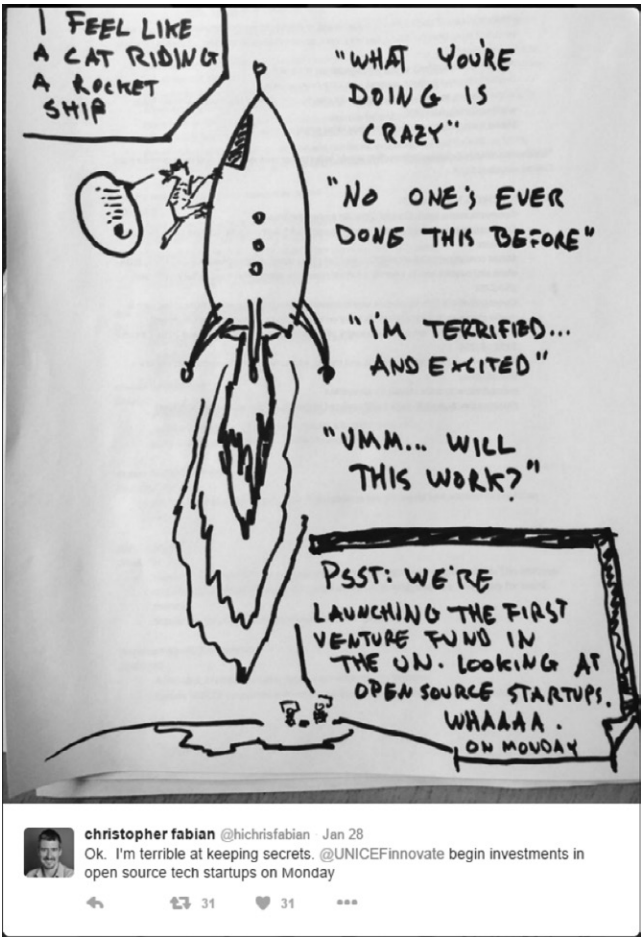 I FEEL LIKE
A CAT RIDING
A ROCKET
SHIP
"WHAT YOU'RE
DOING IS
CRAZY"
"NO ONE'S EVER
DONE THIS BEFORE"
"I'M TERRIFIED...
AND EXCITED"
"UMM... WILL
THIS WORK?"
PSST: WE'RE
LAUNCHING THE FIRST
VENTURE FUND IN
THE UN. LOOKING AT
OPEN SOURCE STARTUPS.
WHAAAA.
ON MONDAY
christopher fabian @hichrisfabian · Jan 28
Ok. I'm terrible at keeping secrets. @UNICEFinnovate begin investments in
open source tech startups on Monday
31 31